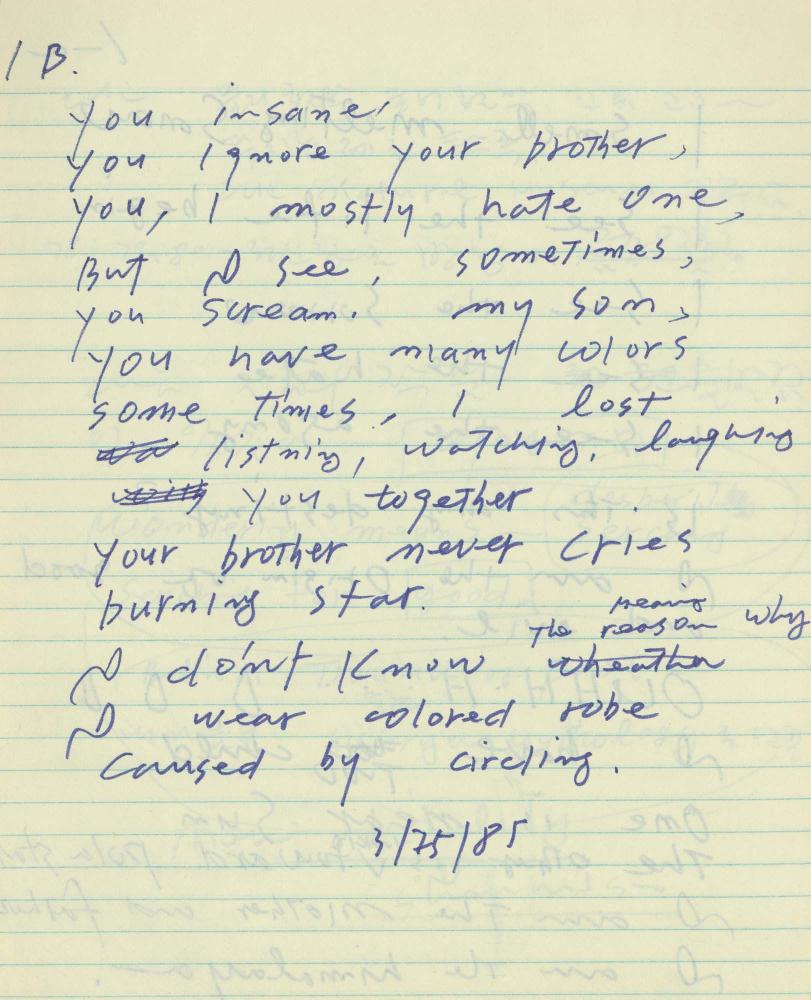 1 B.
you insane,
you Ignore your brother,
you, I mostly hate one,
But I see, sometimes,
you scream. my son,
you have many colors
some times, I lost
listning, watching, laughing
you together.
your brother never cries
burning star.
meaning
The reason why
I don't know wheather
I wear colored robe
caused by circling.
3/25/85